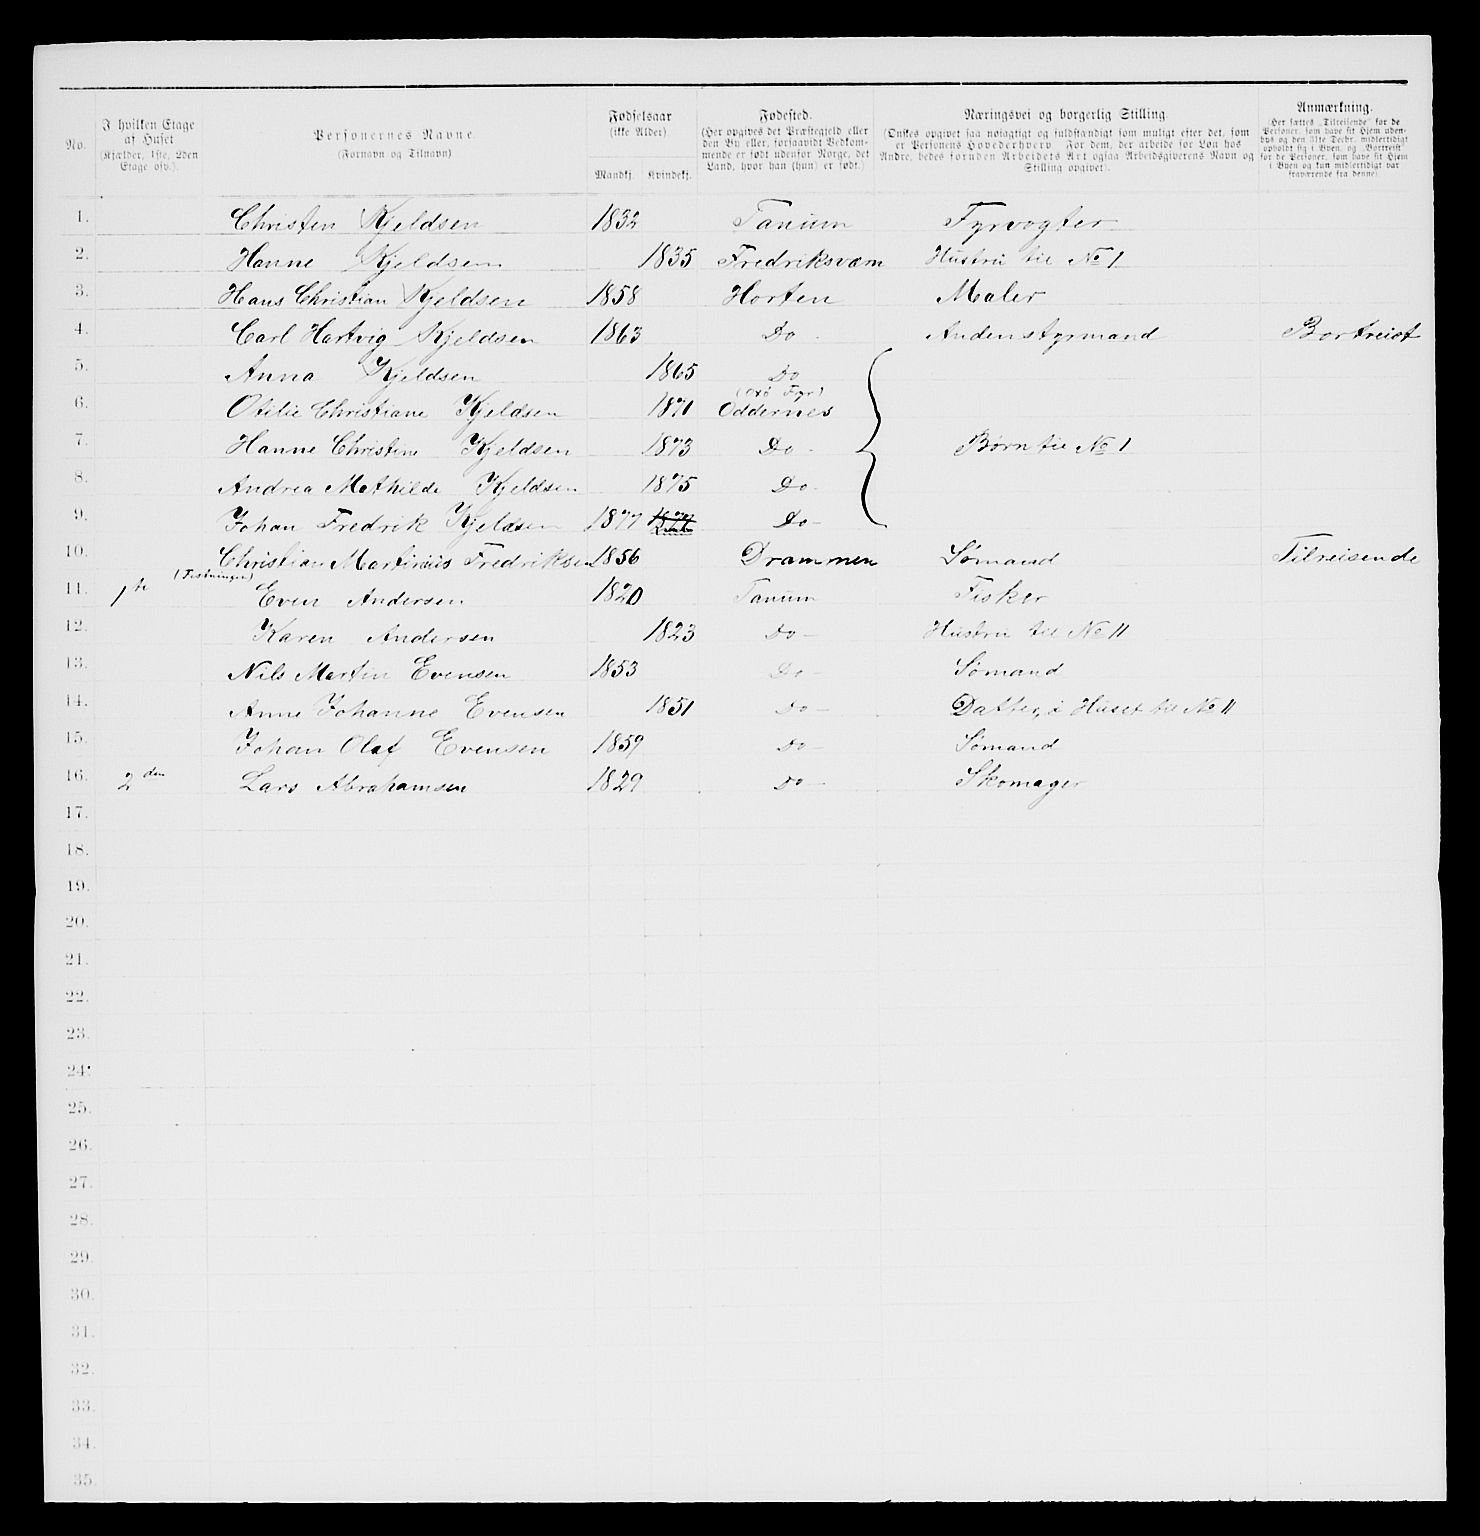 No.
I hvilken Etage af Huset (Kjælder, 1ste, 2den Etage osv.).
Personernes Navne. (Fornavn og Tilnavn)
Fødselsaar (ikke Alder)
Mandkj. Kvindekj.
Fødested. (Her opgives det Præstegjeld eller den By eller, forsaavidt Vedkommende er født udenfor Norge, det Land, hvor han (hun) er født.)
Næringsvei og borgerlig Stilling. (Ønskes opgivet saa nøiagtigt og fuldstændigt som muligt efter det, som er Personens Hovederhverv. For dem, der arbeide for Løn hos Andre, bedes foruden Arbeidets Art ogsaa Arbeidsgiverens Navn og Stilling opgivet).
Anmærkning. (Her sættes „Tilreisende" for de Personer, som have sit Hjem udenbys og den 31te Decbr. midlertidigt opholdt sig i Byen, og „Bortreist" for de Personer, som have sit Hjem i Byen og kun midlertidigt var fraværende fra denne).
1. Christen Kjeldsen 1832 Tanum Fyrvogter
2. Hanne Kjeldsen 1835 Fredriksværn Hustru til No 1
3. Hans Christian Kjeldsen 1858 Horten Maler
4. Carl Hartvig Kjeldsen 1863 Do Andenstyrmand Bortreist
5. Anna Kjeldsen 1865 Do
(Oxö Fyr)
6. Otilie Christiane Kjeldsen 1871 Oddernes
7. Hanne Christine Kjeldsen 1873 Do Børn til No 1
8. Andrea Mathilde Kjeldsen 1875 Do
9. Johan Fredrik Kjeldsen 1877 1877 Do
10. Christian Martinius Fredriksen 1856 Drammen Sømand Tilreisende
11. 1ste Even Andersen 1820 Tanum Fisker
12. Karen Andersen 1823 Do Hustru til No 11
13. Nils Martin Evensen 1853 Do Sømand
14. Anne Johanne Evensen 1851 Do Datter, i Huset til No 11
15. Johan Olaf Evensen 1859 Do Sømand
16. 2den Lars Abrahamsen 1829 Do Skomager
17.
18.
19.
20.
21.
22.
23.
24.
25.
26.
27.
28.
29.
30.
31.
32.
33.
34.
35.